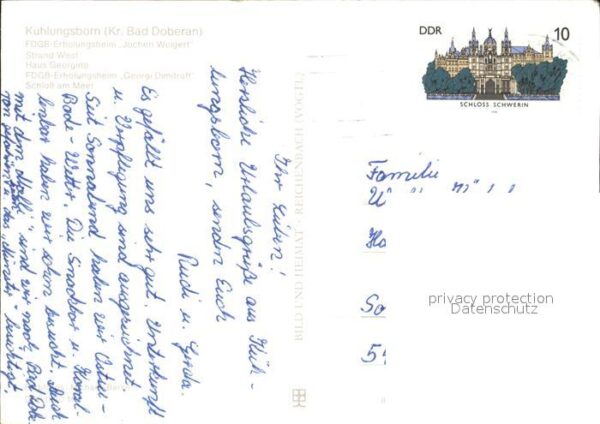 Kühlungsborn (Kr. Bad Doberan)
FDGB-Erholungsheim „Jochen Weigert"
Strand West
Haus Georgine
FDGB-Erholungsheim „Georgi Dimitroff"
Schloß am Meer
BILD UND HEIMAT · REICHENBACH (VOGTL)
DDR 10
SCHLOSS SCHWERIN
Ihr Lieben!
Herzliche Urlaubsgrüße aus Küh-
lungsborn, senden Euch
Rudi u. Gerda.
Es gefällt uns sehr gut. Unterkunft
u. Verpflegung sind ausgezeichnet.
Seit Sonnabend haben wir Ostsee-
Bade-Wetter. Die Snackbar u. Korall-
bar haben wir schon besucht. Auch
mit dem „Molli" sind wir nach Bad Dob.
gefahren u. das Münster besichtigt.
Familie
Ho
So
privacy protection
Datenschutz